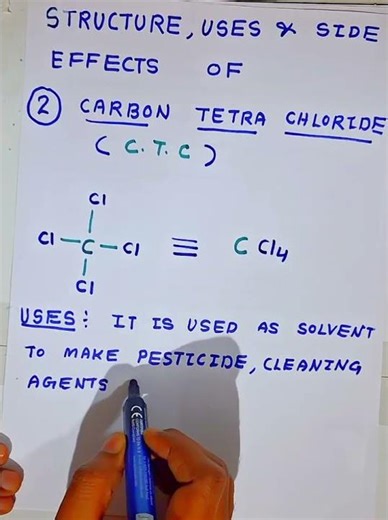 STRUCTURE, USES & SIDE
EFFECTS OF
2 CARBON TETRA CHLORIDE
( C.T.C )
Cl
Cl—C—Cl ≡ CCl4
Cl
USES: IT IS USED AS SOLVENT
TO MAKE PESTICIDE, CLEANING
AGENTS